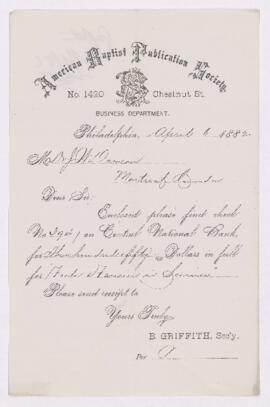 American Baptist Publication Society,
No. 1420 Chestnut St.
BUSINESS DEPARTMENT.
Philadelphia, April 6 1882
Montreal, Canada
Dear Sir:
Enclosed please find check
on Central National Bank
for hundred & fifty Dollars in full
for
Please send receipt to
Yours Truly
B. GRIFFITH, Sec'y.
Per